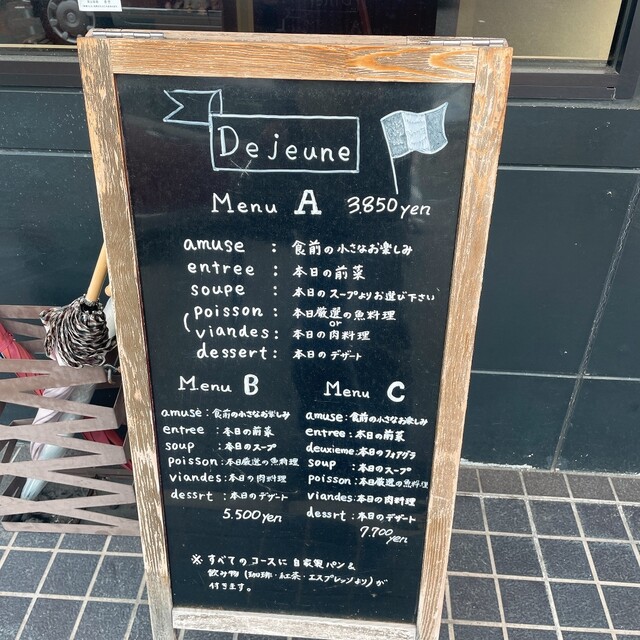 Dejeune
Menu A 3.850yen
amuse : 食前の小さなお楽しみ
entree : 本日の前菜
soupe : 本日のスープよりお選び下さい
(poisson: 本日厳選の魚料理
or
viandes: 本日の肉料理
dessert: 本日のデザート
Menu B
amuse : 食前の小さなお楽しみ
entree : 本日の前菜
soup : 本日のスープ
poisson : 本日厳選の魚料理
viandes : 本日の肉料理
dessrt : 本日のデザート
5.500yen
Menu C
amuse : 食前の小さなお楽しみ
entree : 本日の前菜
deuxieme : 本日のフォアグラ
soup : 本日のスープ
poisson : 本日厳選の魚料理
viandes : 本日の肉料理
dessrt : 本日のデザート
7.700yen
※ すべてのコースに自家製パン&
飲み物(珈琲・紅茶・エスプレッソより)が
付きます。